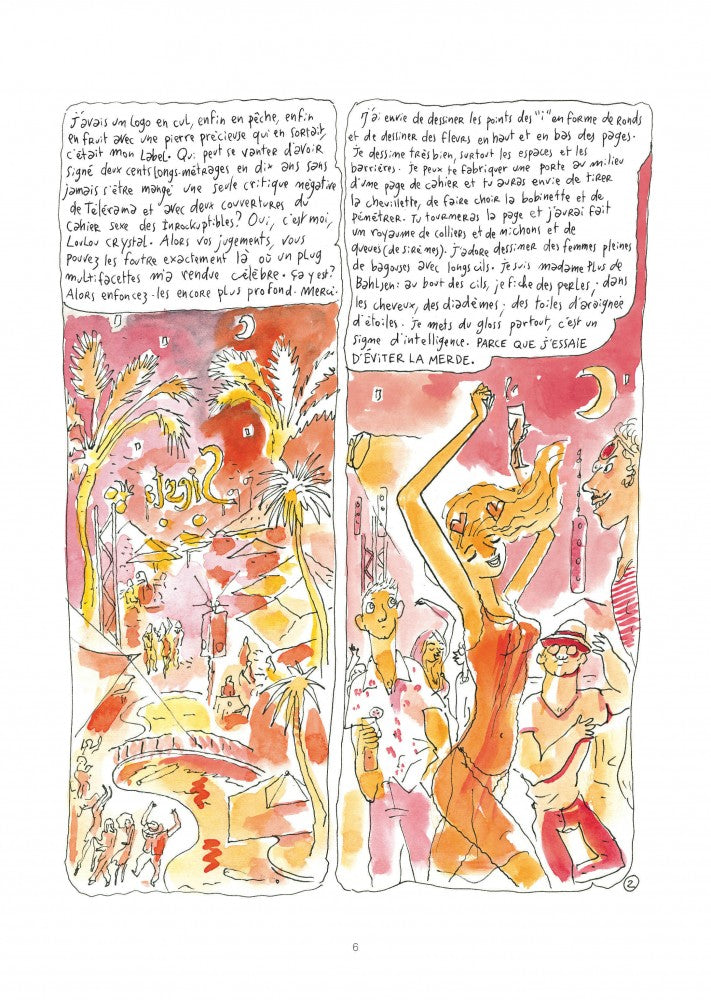 J'avais un logo en cul, enfin en pêche, enfin
en fruit avec une pierre précieuse qui en sortait,
c'était mon label. Qui peut se vanter d'avoir
signé deux cents longs-métrages en dix ans sans
jamais s'être mangé une seule critique négative
de Télérama et avec deux couvertures du
Cahier sexe des Inrockuptibles? Oui, c'est moi,
Loulou Crystal. Alors vos jugements, vous
pouvez les foutre exactement là où un plug
multifacettes m'a rendue célèbre. Ça y est?
Alors enfoncez-les encore plus profond. Merci.
J'ai envie de dessiner les points des "i" en forme de ronds
et de dessiner des fleurs en haut et en bas des pages.
Je dessine très bien, surtout les espaces et les
barrières. Je peux te fabriquer une porte au milieu
d'une page de cahier et tu auras envie de tirer
la chevillette, de faire choir la bobinette et de
pénétrer. Tu tourneras la page et j'aurai fait
un royaume de colliers et de michons et de
queues (de sirènes). J'adore dessiner des femmes pleines
de bagouses avec longs cils. Je suis madame Plus de
Bahlsen: au bout des cils, je fiche des perles; dans
les cheveux, des diadèmes; des toiles d'araignée
d'étoiles. Je mets du gloss partout, c'est un
signe d'intelligence. PARCE QUE J'ESSAIE
D'ÉVITER LA MERDE.
2
6